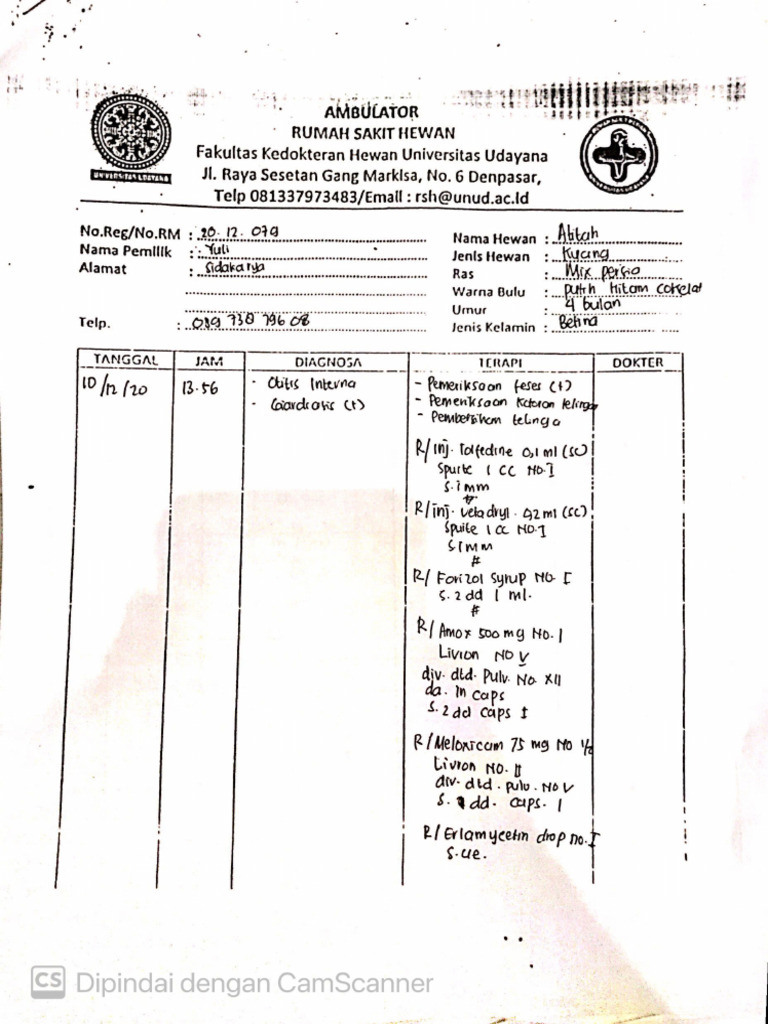 AMBULATOR
RUMAH SAKIT HEWAN
Fakultas Kedokteran Hewan Universitas Udayana
Jl. Raya Sesetan Gang Markisa, No. 6 Denpasar,
Telp 081337973483/Email : rsh@unud.ac.id
UNIVERSITAS UDAYANA
No.Reg/No.RM : 20.12.079
Nama Pemilik : Yuli
Alamat : Sidakarya
Telp. : 089 738 796 08
Nama Hewan : Abitah
Jenis Hewan : Kucing
Ras : Mix persia
Warna Bulu : putih hitam cokelat
Umur : 4 bulan
Jenis Kelamin : Betina
TANGGAL JAM DIAGNOSA TERAPI DOKTER
10/12/20 13.56
- Otitis Interna
- Giardiasis (+)
- Pemeriksaan feses (+)
- Pemeriksaan kotoran telinga
- Pembersihan telinga
R/ inj. Tolfedine 0,1 ml (SC)
Spuite 1 CC NO. I
S. i mm
#
R/ inj. Veladryl. 0,2 ml (SC)
Spuite 1 CC NO. I
S i mm
#
R/ Forizol Syrup NO. I
S. 2 dd 1 ml.
#
R/ Amox 500 mg No. I
Livron NO V
div. dtd. Pulv. No. XII
da. in caps
S. 2 dd caps I
R/ Meloxicam 75 mg No 1/2
Livron NO. II
div. dtd. pulv. NO V
S. 1 dd. caps. I
R/ Erlamycetin drop no. I
S. ue.
CS Dipindai dengan CamScanner